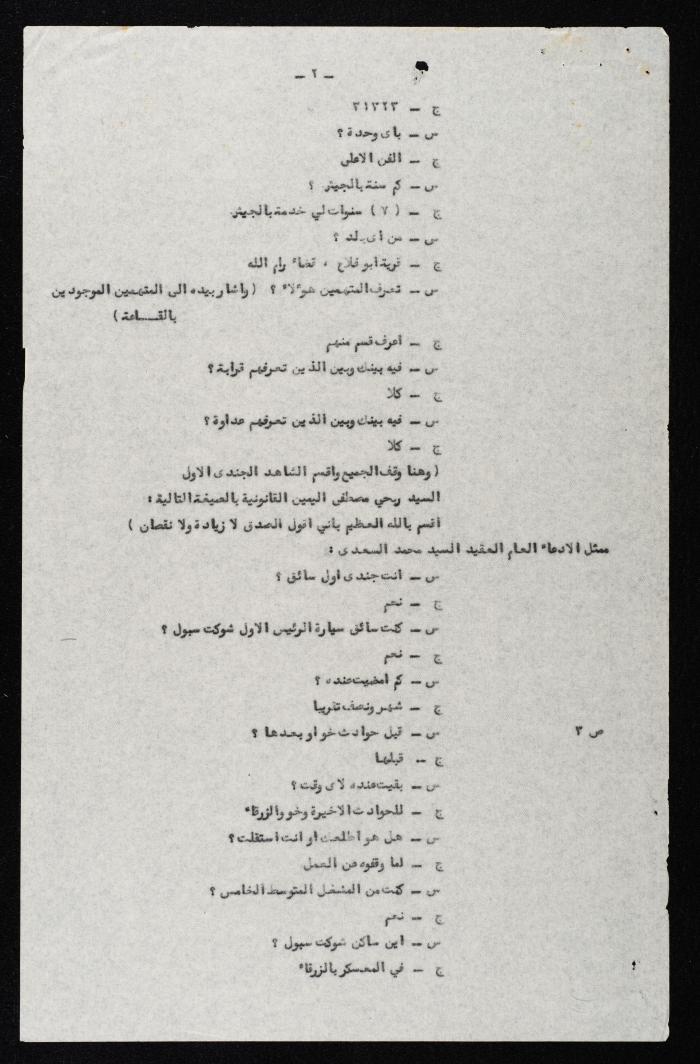 - ٢ -
ج - ٣١٣٢٣
س - باى وحدة ؟
ج - الفن الاعلى
س - كم سنة بالجيش ؟
ج - ( ٧ ) سنوات لي خدمة بالجيش
س - من اى بلد ؟
ج - قرية ابو فلاح ، قضاء رام الله
س - تعرف المتهمين هؤلاء ؟ ( واشار بيده الى المتهمين الموجودين
بالقـــاعة )
ج - اعرف قسم منهم
س - فيه بينك وبين الذين تعرفهم قرابة ؟
ج - كلا
س - فيه بينك وبين الذين تعرفهم عداوة ؟
ج - كلا
( وهنا وقف الجميع واقسم الشاهد الجندى الاول
السيد ربحي مصطفى اليمين القانونية بالصيغة التالية :
اقسم بالله العظيم باني اقول الصدق لا زيادة ولا نقصان )
ممثل الادعاء العام العقيد السيد محمد السعدى :
س - انت جندى اول سائق ؟
ج - نعم
س - كنت سائق سيارة الرئيس الاول شوكت سبول ؟
ج - نعم
س - كم امضيت عنده ؟
ج - شهر ونصف تقريبا
ص ٣ س - قبل حوادث خو او بعدها ؟
ج -- قبلها
س - بقيت عنده لاى وقت ؟
ج - للحوادث الاخيرة وخو والزرقاء
س - هل هو اطلعك او انت استقلت ؟
ج - لما وقفوه عن العمل
س - كنت من المشغل المتوسط الخامس ؟
ج - نعم
س - اين ساكن شوكت سبول ؟
ج - في المعسكر بالزرقاء